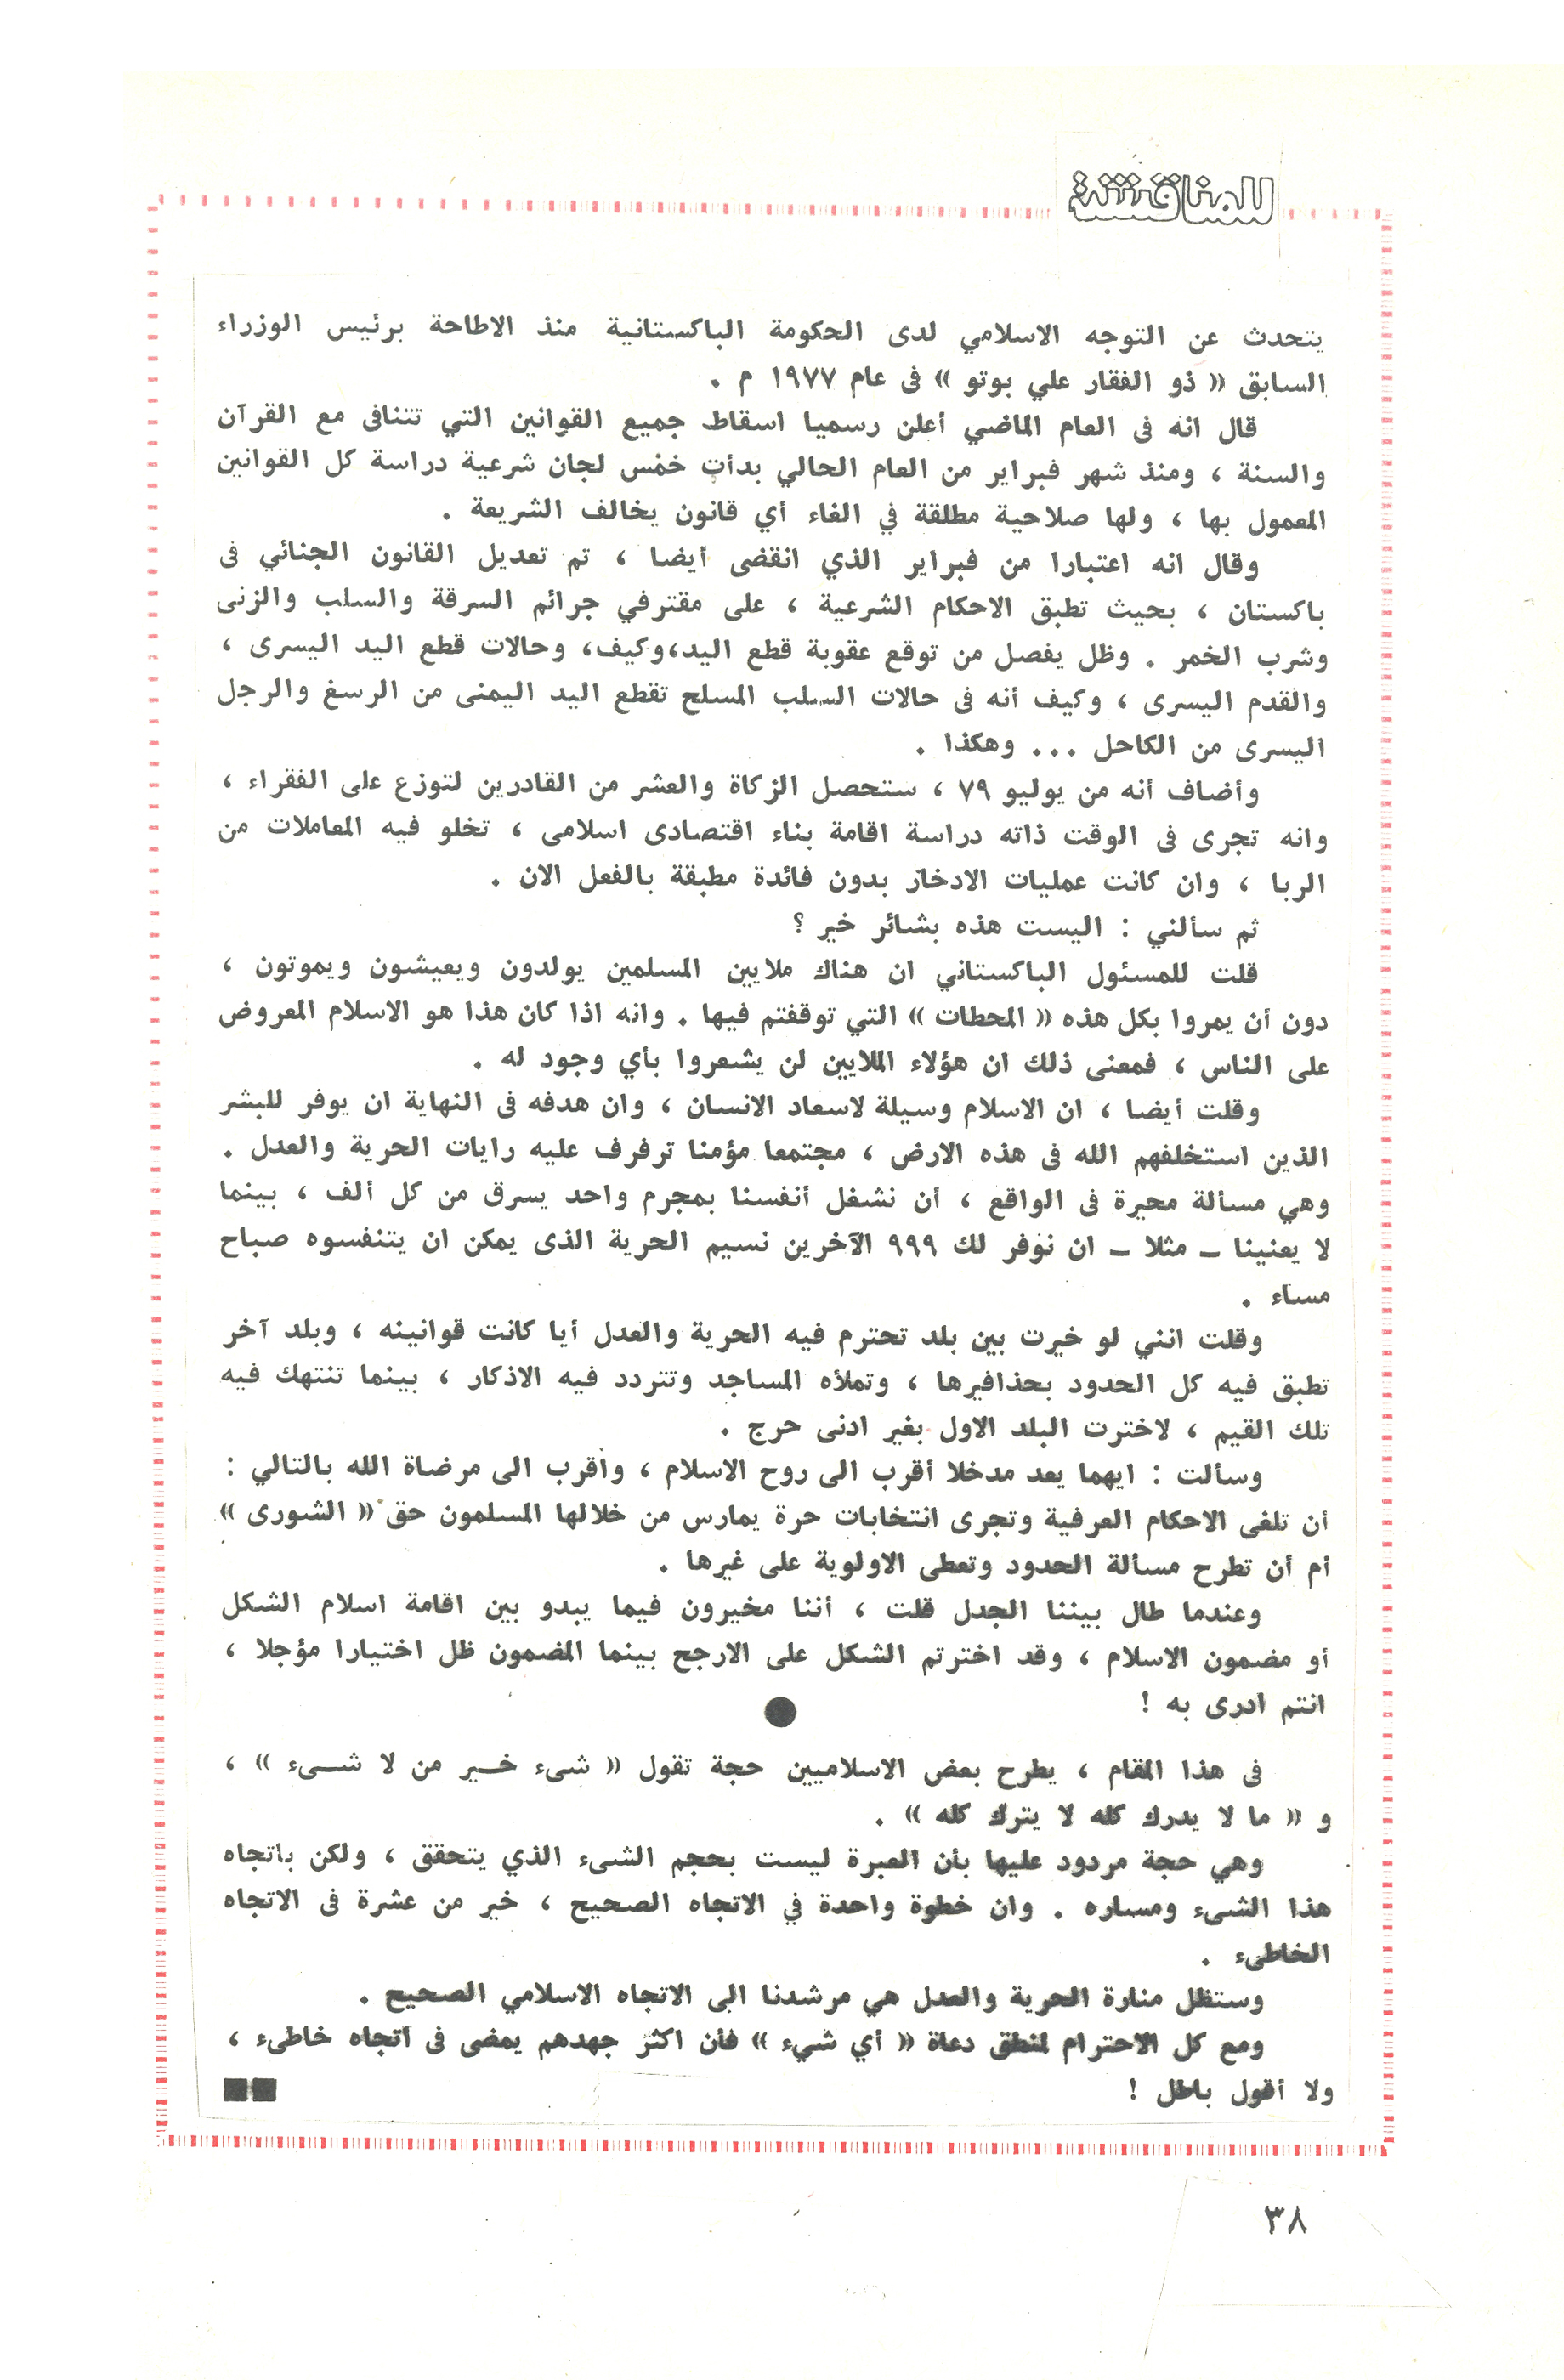 للمناقشة
يتحدث عن التوجه الاسلامي لدى الحكومة الباكستانية منذ الاطاحة برئيس الوزراء
السابق « ذو الفقار علي بوتو » فى عام ١٩٧٧ م .
قال انه فى العام الماضي أعلن رسميا اسقاط جميع القوانين التي تتنافى مع القرآن
والسنة ، ومنذ شهر فبراير من العام الحالي بدأت خمس لجان شرعية دراسة كل القوانين
المعمول بها ، ولها صلاحية مطلقة في الغاء أي قانون يخالف الشريعة .
وقال انه اعتبارا من فبراير الذي انقضى أيضا ، تم تعديل القانون الجنائي فى
باكستان ، بحيث تطبق الاحكام الشرعية ، على مقترفي جرائم السرقة والسلب والزنى
وشرب الخمر . وظل يفصل من توقع عقوبة قطع اليد،وكيف، وحالات قطع اليد اليسرى ،
والقدم اليسرى ، وكيف أنه فى حالات السلب المسلح تقطع اليد اليمنى من الرسغ والرجل
اليسرى من الكاحل ... وهكذا .
وأضاف أنه من يوليو ٧٩ ، ستحصل الزكاة والعشر من القادرين لتوزع على الفقراء ،
وانه تجرى فى الوقت ذاته دراسة اقامة بناء اقتصادى اسلامى ، تخلو فيه المعاملات من
الربا ، وان كانت عمليات الادخار بدون فائدة مطبقة بالفعل الان .
ثم سألني : اليست هذه بشائر خير ؟
قلت للمسئول الباكستاني ان هناك ملايين المسلمين يولدون ويعيشون ويموتون ،
دون أن يمروا بكل هذه « المحطات » التي توقفتم فيها . وانه اذا كان هذا هو الاسلام المعروض
على الناس ، فمعنى ذلك ان هؤلاء الملايين لن يشعروا بأي وجود له .
وقلت أيضا ، ان الاسلام وسيلة لاسعاد الانسان ، وان هدفه فى النهاية ان يوفر للبشر
الذين استخلفهم الله فى هذه الارض ، مجتمعا مؤمنا ترفرف عليه رايات الحرية والعدل .
وهي مسألة محيرة فى الواقع ، أن نشغل أنفسنا بمجرم واحد يسرق من كل ألف ، بينما
لا يعنينا ـ مثلا ـ ان نوفر لك ٩٩٩ الآخرين نسيم الحرية الذى يمكن ان يتنفسوه صباح
مساء .
وقلت انني لو خيرت بين بلد تحترم فيه الحرية والعدل أيا كانت قوانينه ، وبلد آخر
تطبق فيه كل الحدود بحذافيرها ، وتملأه المساجد وتتردد فيه الاذكار ، بينما تنتهك فيه
تلك القيم ، لاخترت البلد الاول بغير ادنى حرج .
وسألت : ايهما يعد مدخلا أقرب الى روح الاسلام ، وأقرب الى مرضاة الله بالتالي :
أن تلغى الاحكام العرفية وتجرى انتخابات حرة يمارس من خلالها المسلمون حق « الشورى »
أم أن تطرح مسألة الحدود وتعطى الاولوية على غيرها .
وعندما طال بيننا الجدل قلت ، أننا مخيرون فيما يبدو بين اقامة اسلام الشكل
أو مضمون الاسلام ، وقد اخترتم الشكل على الارجح بينما المضمون ظل اختيارا مؤجلا ،
انتم ادرى به !
فى هذا المقام ، يطرح بعض الاسلاميين حجة تقول « شىء خـير من لا شـىء » ،
و « ما لا يدرك كله لا يترك كله » .
وهي حجة مردود عليها بأن العبرة ليست بحجم الشىء الذي يتحقق ، ولكن باتجاه
هذا الشىء ومساره . وان خطوة واحدة في الاتجاه الصحيح ، خير من عشرة فى الاتجاه
الخاطىء .
وستظل منارة الحرية والعدل هي مرشدنا الى الاتجاه الاسلامي الصحيح .
ومع كل الاحترام لمنطق دعاة « أي شيء » فأن اكثر جهدهم يمضى فى اتجاه خاطىء ،
ولا أقول باطل !
٣٨